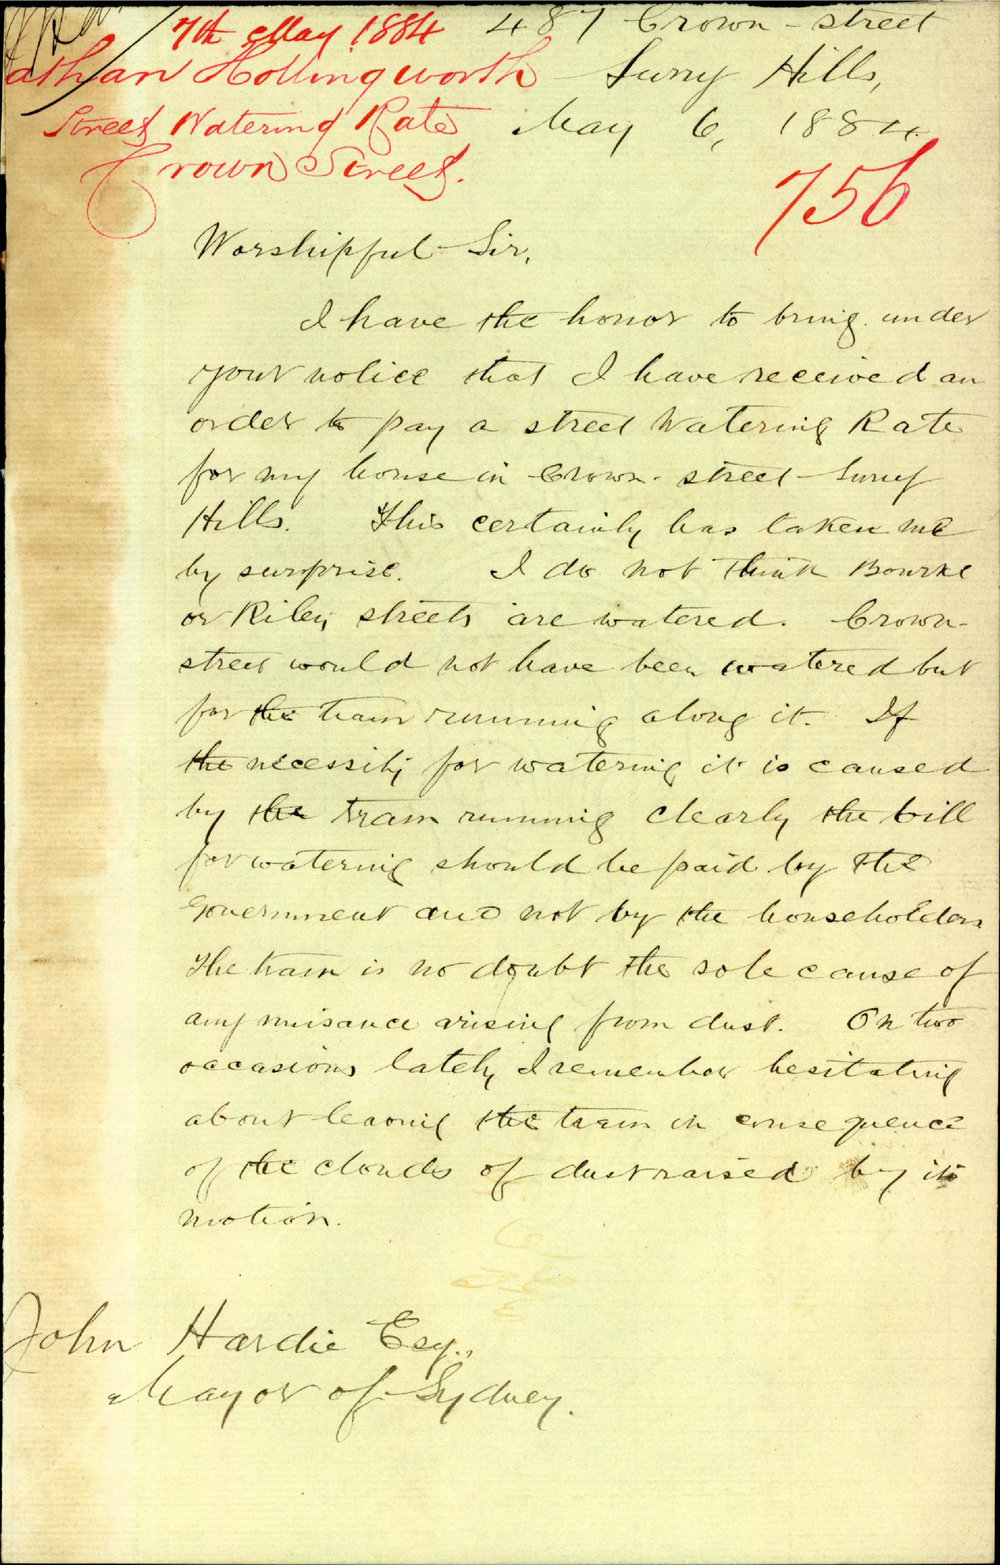 7th May 1884
athan Hollingworth
Street Watering Rate
Crown Street.
487 Crown-street
Surry Hills,
May 6, 1884.
756
Worshipful Sir,
I have the honor to bring under
your notice that I have received an
order to pay a street Watering Rate
for my house in Crown-street Surry
Hills. This certainly has taken me
by surprise. I do not think Bourke
or Riley streets are watered. Crown-
street would not have been watered but
for the tram running along it. If
the necessity for watering it is caused
by the tram running clearly the bill
for watering should be paid by the
Government and not by the householders
The tram is no doubt the sole cause of
any nuisance arising from dust. On two
occasions lately I remember hesitating
about leaving the tram in consequence
of the clouds of dust raised by its
motion.
John Hardie Esq.,
Mayor of Sydney.